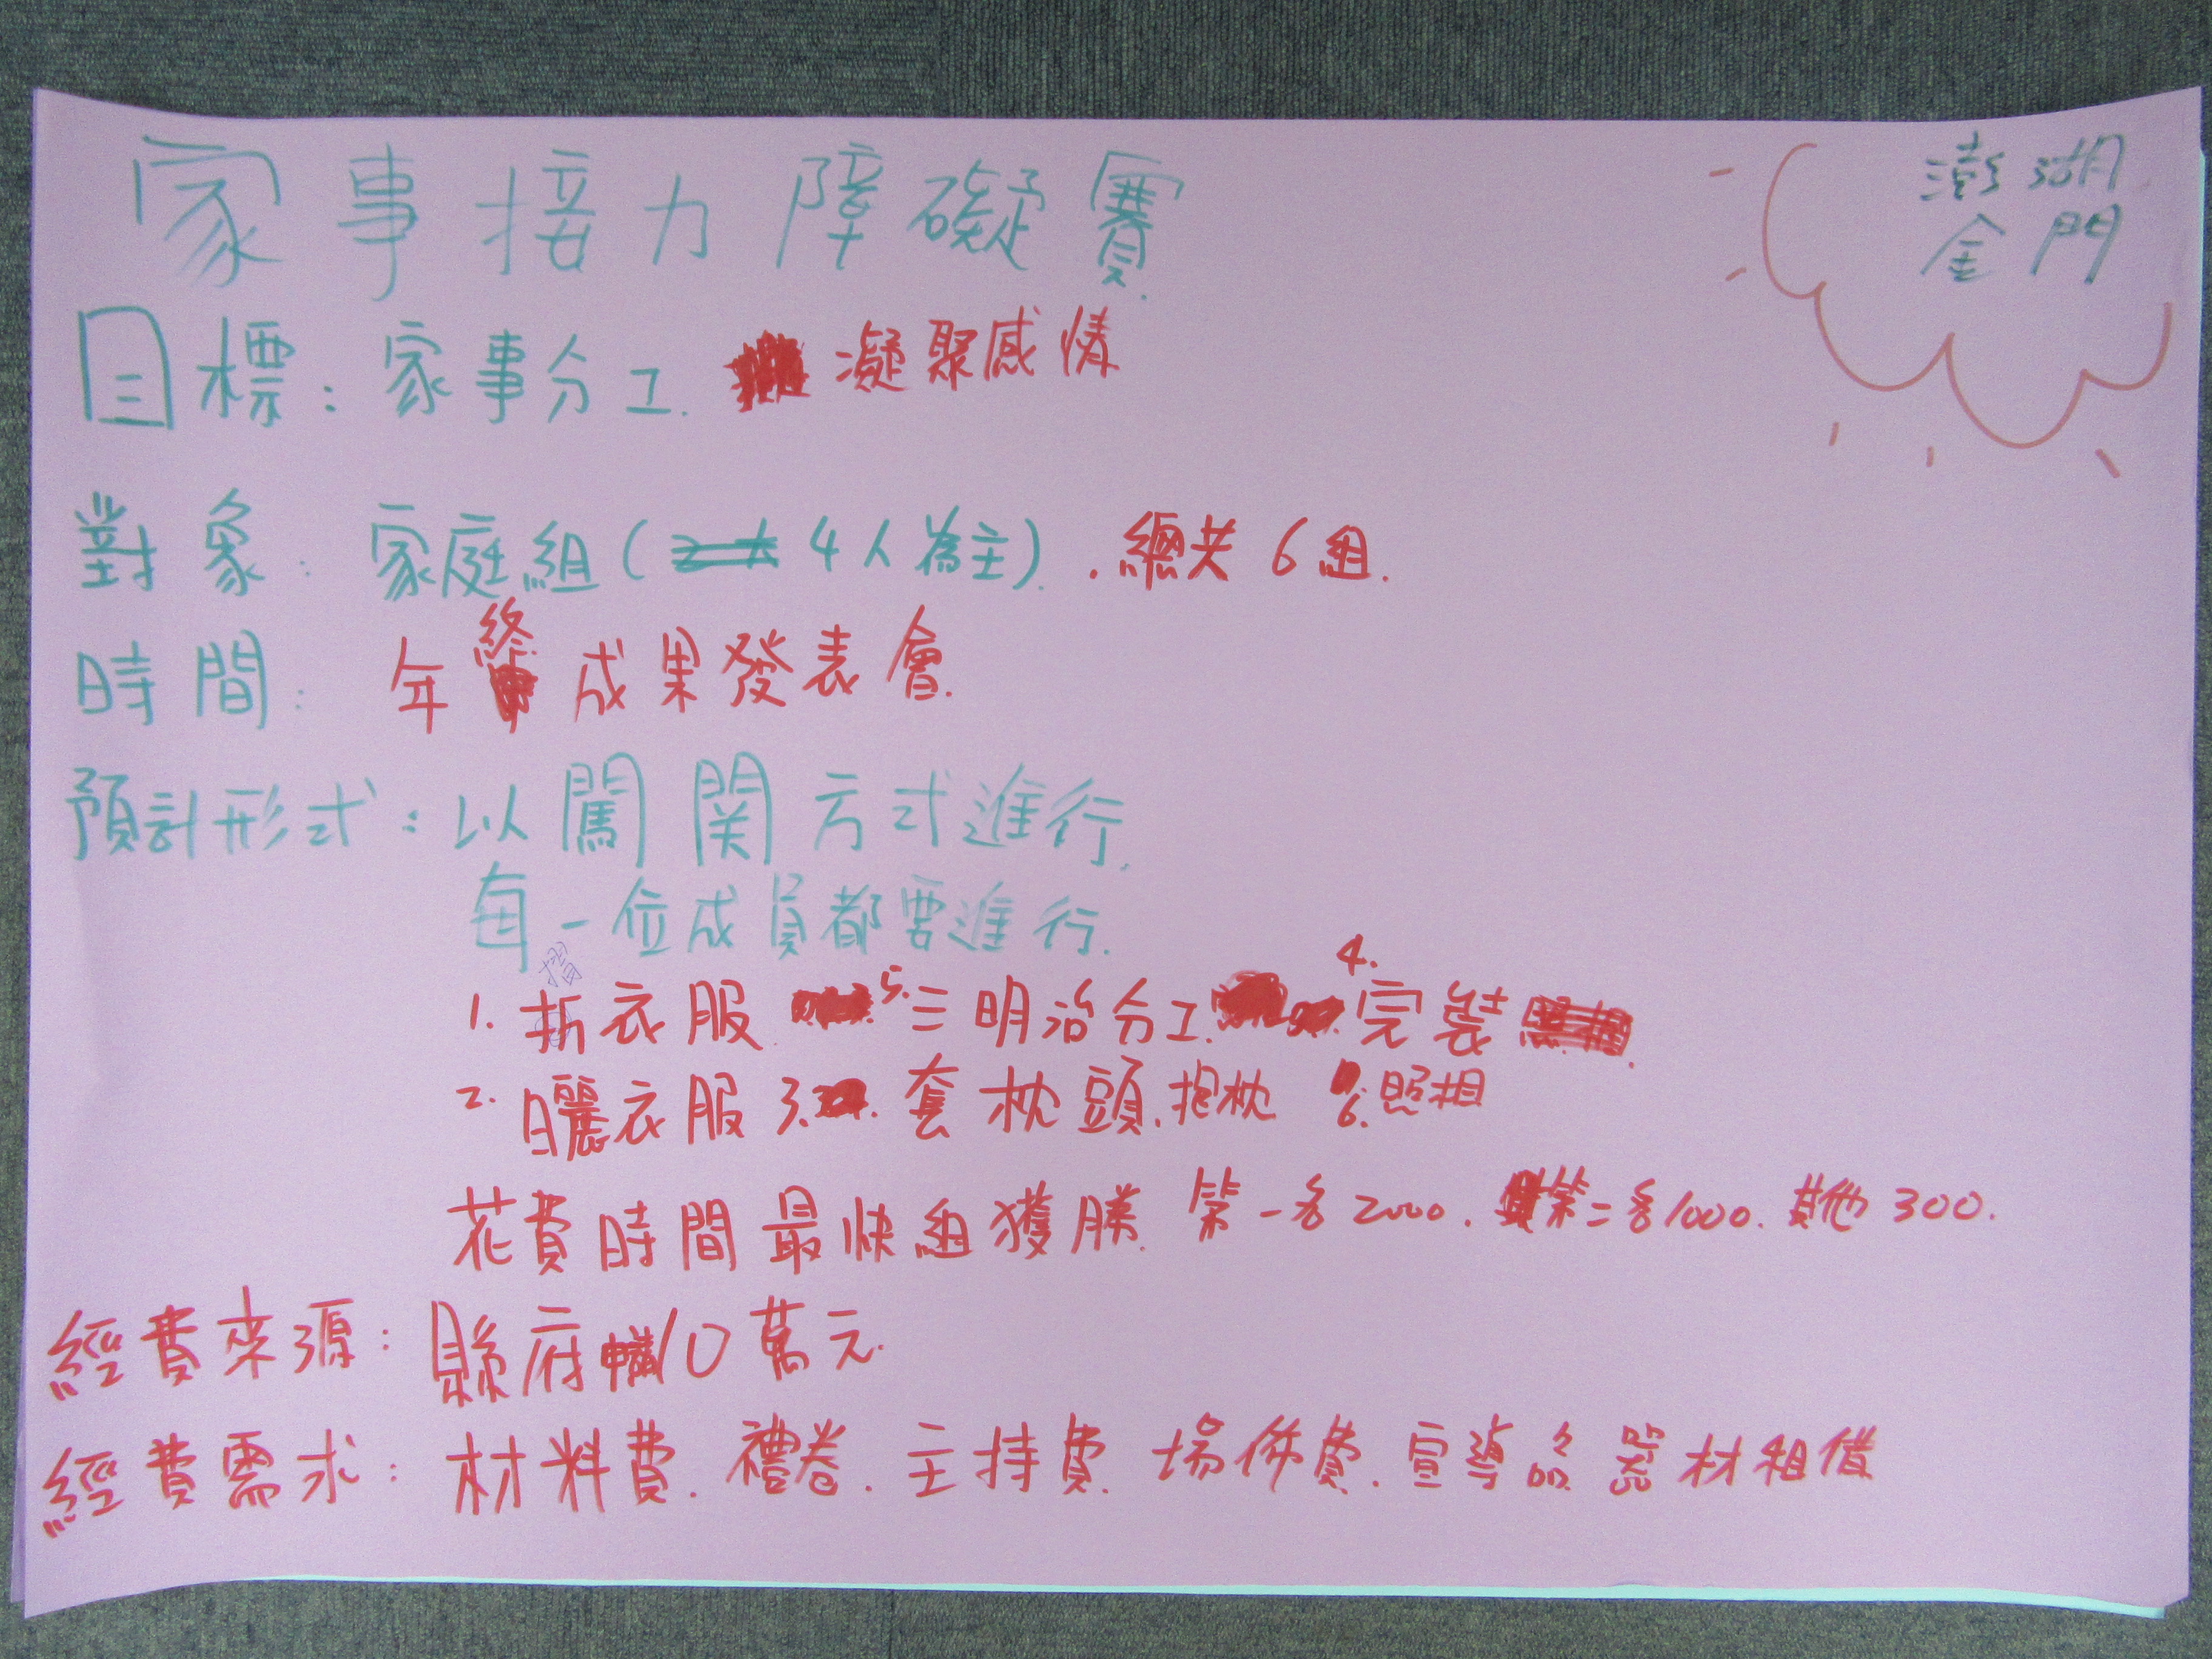 澎湖
金門
家事接力障礙賽
目標：家事分工. 凝聚感情
對象：家庭組(4人為主). 總共6組.
時間：年終成果發表會.
預計形式：以闖関方式進行.
每一位成員都要進行.
摺
1. 折衣服 5.三明治分工. 4.完裝
2. 曬衣服 3. 套枕頭.抱枕 6.照相
花費時間最快組獲勝. 第一名2000. 第二名1000. 其他300.
經費來源：縣府 10萬元.
經費需求：材料費. 禮卷. 主持費. 場佈費. 宣導品 器材租借